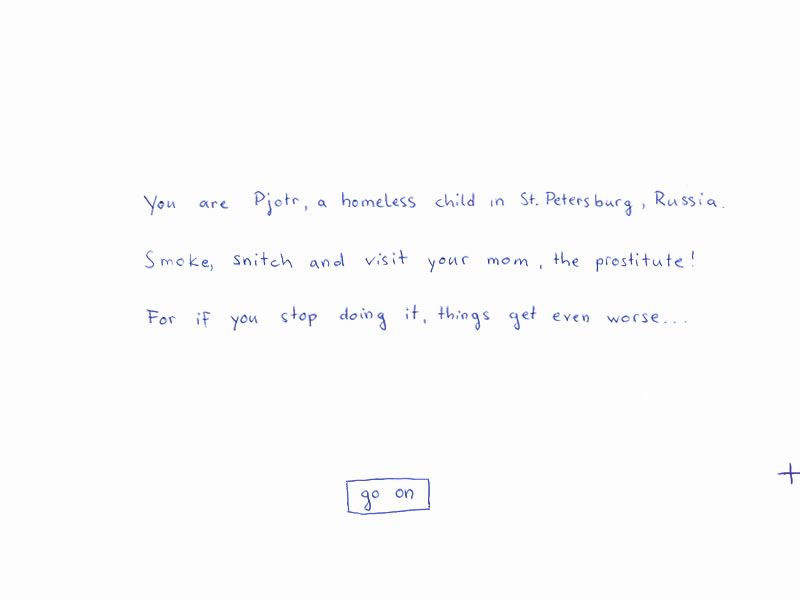 You are Pjotr, a homeless child in St. Petersburg, Russia.
Smoke, snitch and visit your mom, the prostitute!
For if you stop doing it, things get even worse...
go on